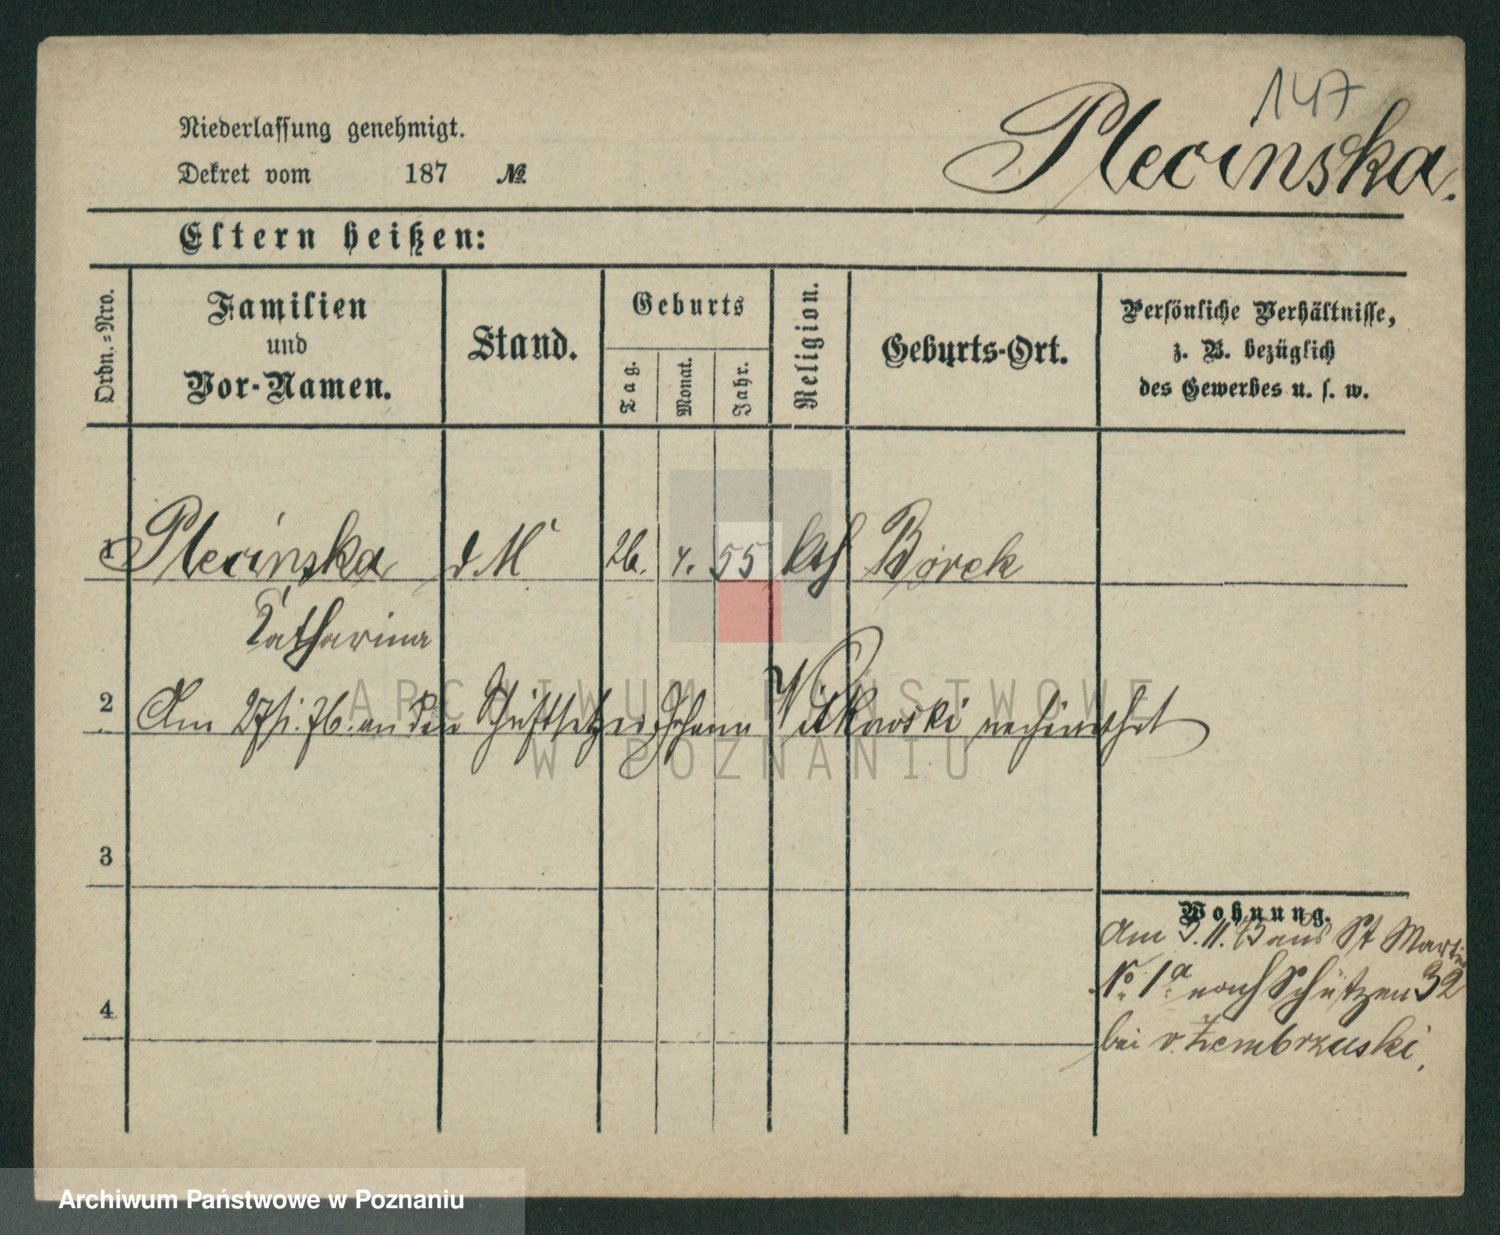 147
Plecinska.
Niederlassung genehmigt.
Dekret vom 187 №
Eltern heißen:
Ordn.-Nro.
Familien
und
Vor-Namen.
Stand.
Geburts
Tag.
Monat.
Jahr.
Religion.
Geburts-Ort.
Persönliche Verhältnisse,
z. B. bezüglich
des Gewerbes u. s. w.
1 Plecinska d. M 26. 4. 55 kath Borek
Katharina
2 Am 27/1. 76. an den Schriftsetzer Johann Witkowski verheirathet
3
Wohnung.
Am 3. 11. 75 aus St Martin
No. 1a nach Schützen 32
bei v. Zembrzuski.
4
ARCHIWUM PAŃSTWOWE
W POZNANIU
Archiwum Państwowe w Poznaniu